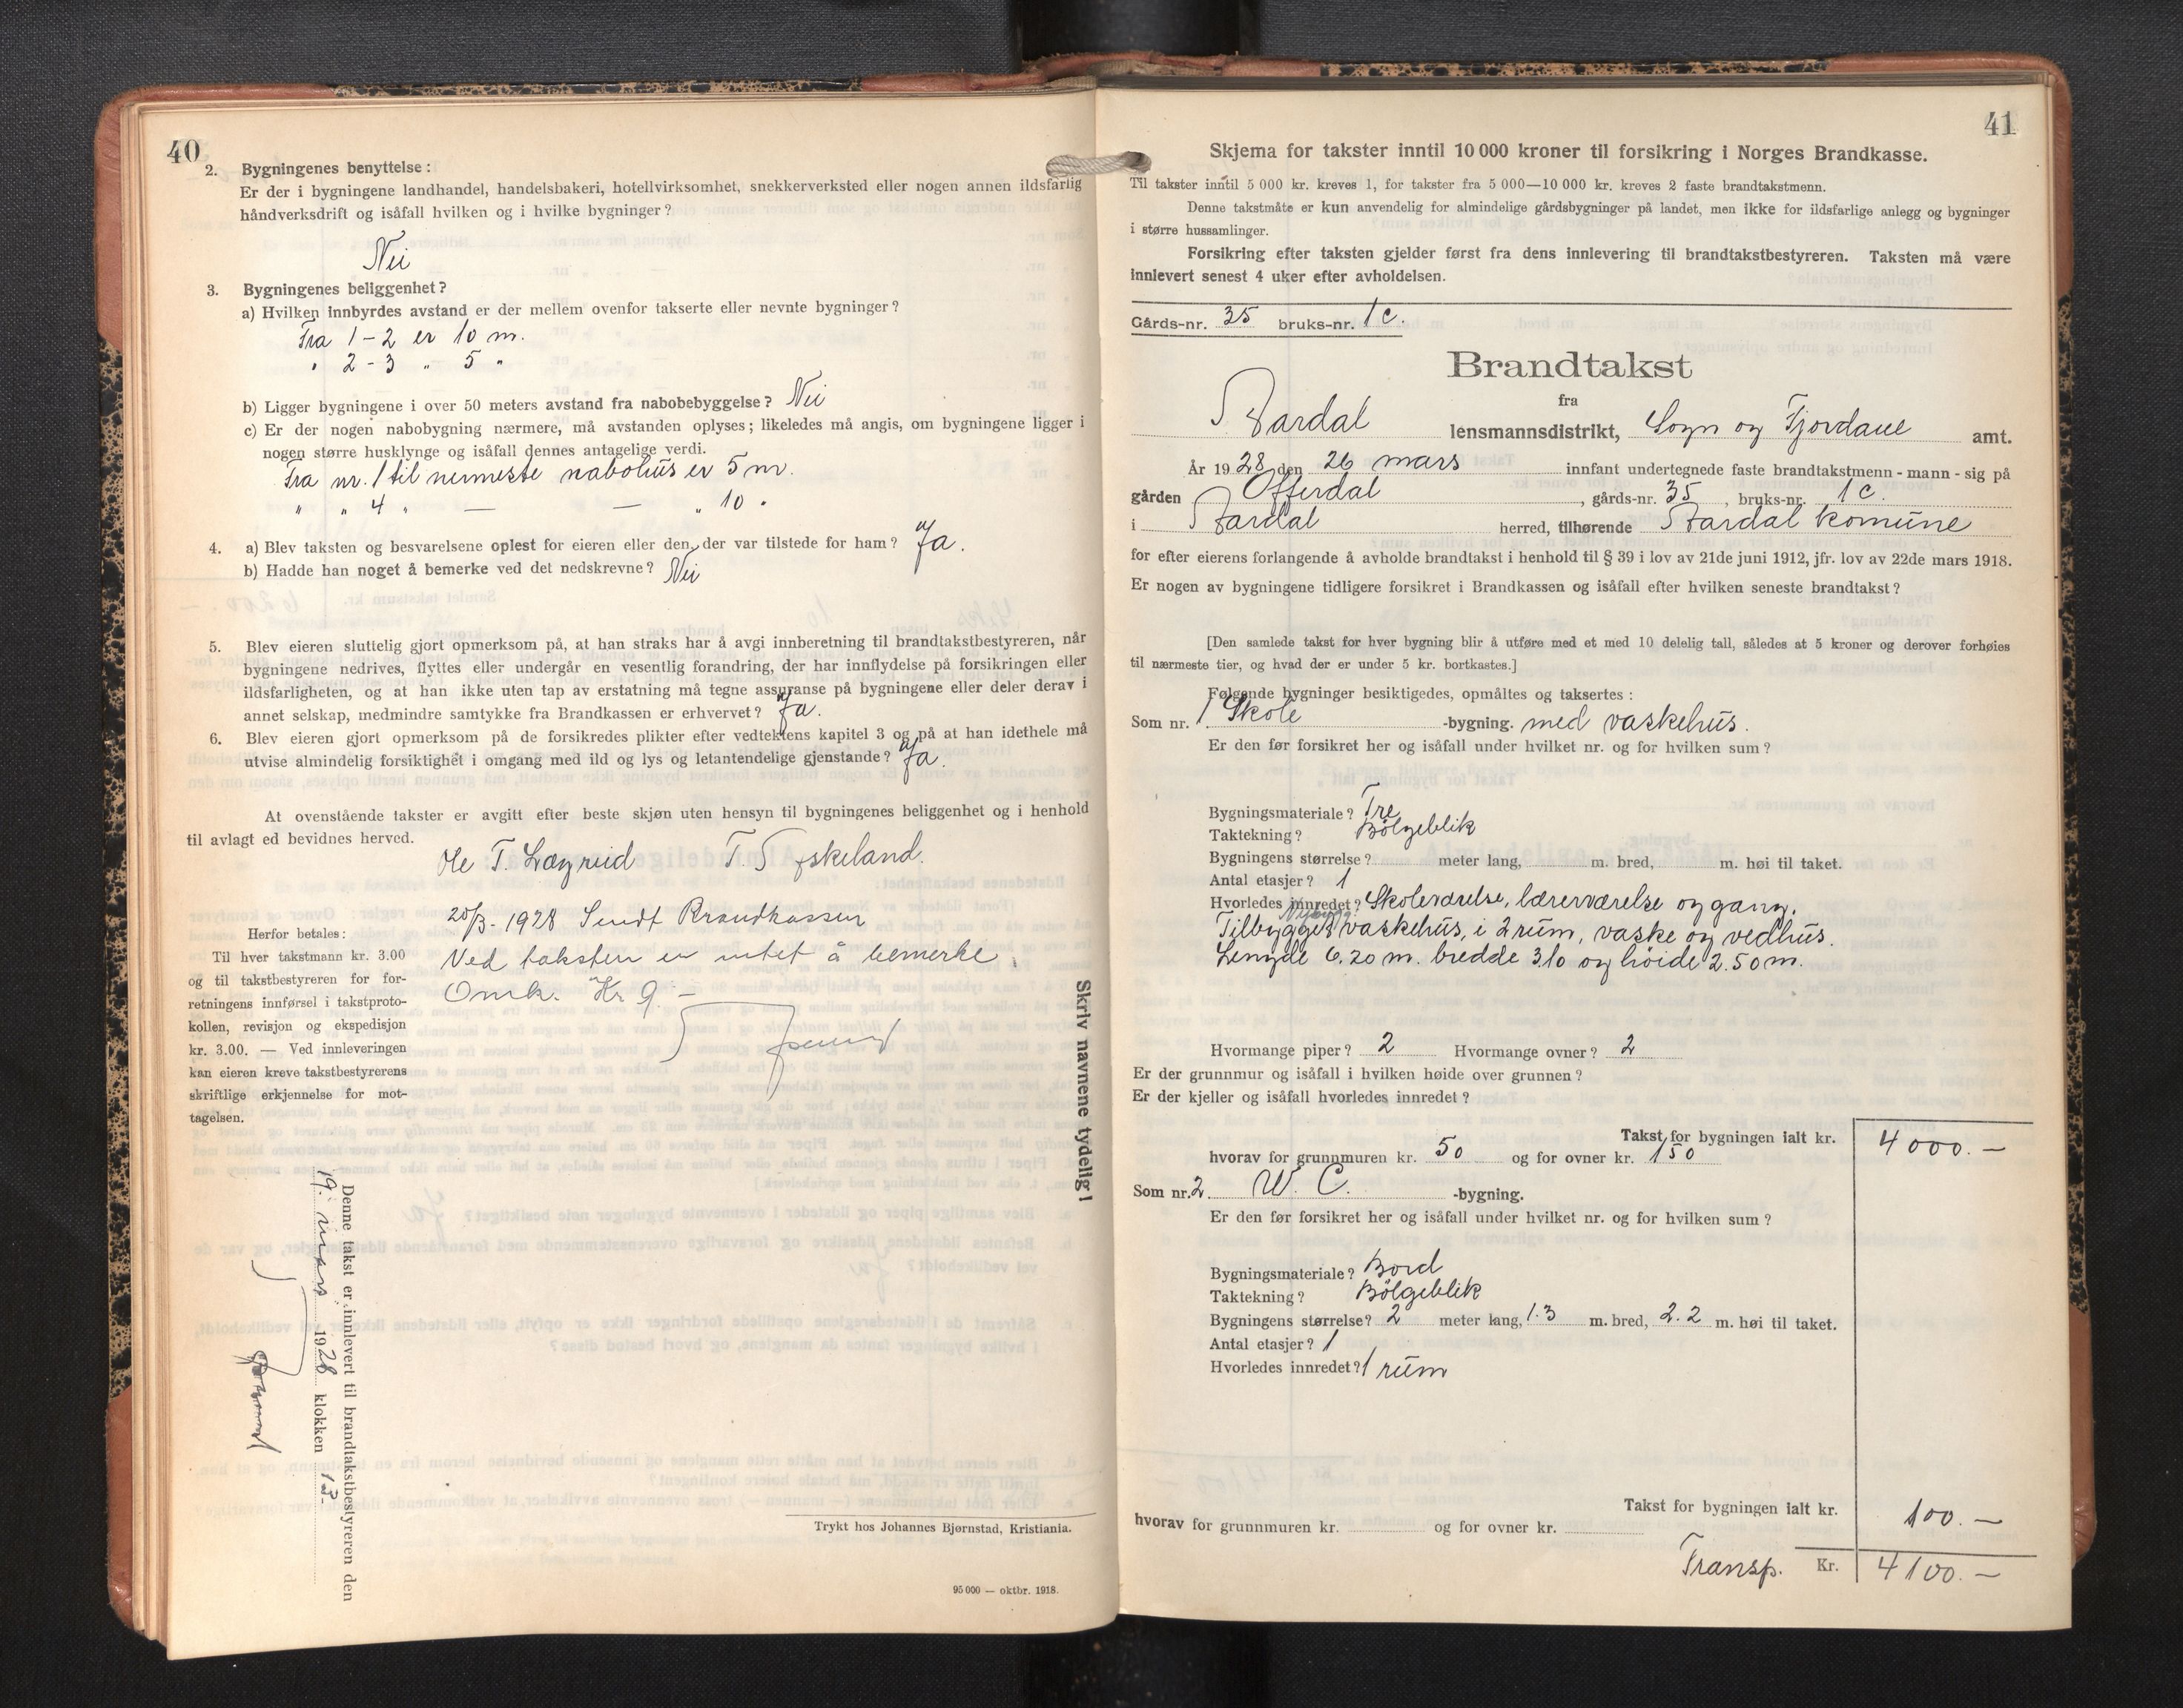 40
2. Bygningenes benyttelse:
Er der i bygningene landhandel, handelsbakeri, hotellvirksomhet, snekkerverksted eller nogen annen ildsfarlig
håndverksdrift og isåfall hvilken og i hvilke bygninger?
Nei
3. Bygningenes beliggenhet?
a) Hvilken innbyrdes avstand er der mellem ovenfor takserte eller nevnte bygninger?
Fra 1-2 er 10 m.
" 2-3 " 5 "
b) Ligger bygningene i over 50 meters avstand fra nabobebyggelse? Nei
c) Er der nogen nabobygning nærmere, må avstanden oplyses; likeledes må angis, om bygningene ligger i
nogen større husklynge og isåfall dennes antagelige verdi.
Fra nr. 1 til nermeste nabohus er 5 m.
" " 4 " — — " 10 "
4. a) Blev taksten og besvarelsene oplest for eieren eller den, der var tilstede for ham? Ja.
b) Hadde han noget å bemerke ved det nedskrevne? Nei
5. Blev eieren sluttelig gjort opmerksom på, at han straks har å avgi innberetning til brandtakstbestyreren, når
bygningene nedrives, flyttes eller undergår en vesentlig forandring, der har innflydelse på forsikringen eller
ildsfarligheten, og at han ikke uten tap av erstatning må tegne assuranse på bygningene eller deler derav i
annet selskap, medmindre samtykke fra Brandkassen er erhvervet? Ja.
6. Blev eieren gjort opmerksom på de forsikredes plikter efter vedtektens kapitel 3 og på at han idethele må
utvise almindelig forsiktighet i omgang med ild og lys og letantendelige gjenstande? Ja.
At ovenstående takster er avgitt efter beste skjøn uten hensyn til bygningenes beliggenhet og i henhold
til avlagt ed bevidnes herved.
Ole T. Lægreid T. S. Eskeland.
20/3-1928 Sendt Brandkassen
Ved taksten er intet å bemerke.
Omk. Kr 9.-
Herfor betales:
Til hver takstmann kr. 3.00
og til takstbestyreren for for-
retningens innførsel i takstproto-
kollen, revisjon og ekspedisjon
kr. 3.00. — Ved innleveringen
kan eieren kreve takstbestyrerens
skriftlige erkjennelse for mot-
tagelsen.
Skriv navnene tydelig!
Denne takst er innlevert til brandtakstbestyreren den
19. mars 1928 klokken 13.
Trykt hos Johannes Bjørnstad, Kristiania.
95 000 — oktbr. 1918.
41
Skjema for takster inntil 10 000 kroner til forsikring i Norges Brandkasse.
Til takster inntil 5 000 kr. kreves 1, for takster fra 5 000—10 000 kr. kreves 2 faste brandtakstmenn.
Denne takstmåte er kun anvendelig for almindelige gårdsbygninger på landet, men ikke for ildsfarlige anlegg og bygninger
i større hussamlinger.
Forsikring efter taksten gjelder først fra dens innlevering til brandtakstbestyreren. Taksten må være
innlevert senest 4 uker efter avholdelsen.
Gårds-nr. 35 bruks-nr. 1c.
Brandtakst
fra
Årdal lensmannsdistrikt, Sogn og Fjordane amt.
År 1928 den 26 mars innfant undertegnede faste brandtakstmenn - mann - sig på
gården Offerdal, gårds-nr. 35, bruks-nr. 1c.
i Årdal herred, tilhørende Årdal komune
for efter eierens forlangende å avholde brandtakst i henhold til § 39 i lov av 21de juni 1912, jfr. lov av 22de mars 1918.
Er nogen av bygningene tidligere forsikret i Brandkassen og isåfall efter hvilken seneste brandtakst?
[Den samlede takst for hver bygning blir å utføre med et med 10 delelig tall, således at 5 kroner og derover forhøies
til nærmeste tier, og hvad der er under 5 kr. bortkastes.]
Følgende bygninger besiktigedes, opmåltes og taksertes:
Som nr. 1 Skole -bygning. med vaskehus.
Er den før forsikret her og isåfall under hvilket nr. og for hvilken sum?
Bygningsmateriale? Tre
Taktekning? Bölgeblik
Bygningens størrelse? meter lang, m. bred, m. høi til taket.
Antal etasjer? 1
Hvorledes innredet? Skoleværelse, lærerværelse og gang.
Tilbygget vaskehus, i 2 rum, vaske og vedhus.
Lengde 6.20 m. bredde 3.10 og höide 2.50 m.
Hvormange piper? 2 Hvormange ovner? 2
Er der grunnmur og isåfall i hvilken høide over grunnen?
Er der kjeller og isåfall hvorledes innredet?
Takst for bygningen ialt kr. 4000.—
hvorav for grunnmuren kr. 50 og for ovner kr. 150
Som nr. 2. W. C. -bygning.
Er den før forsikret her og isåfall under hvilket nr. og for hvilken sum?
Bygningsmateriale? Bord
Taktekning? Bölgeblik
Bygningens størrelse? 2 meter lang, 1.3 m. bred, 2.2 m. høi til taket.
Antal etasjer? 1
Hvorledes innredet? 1 rum
Takst for bygningen ialt kr. 100.—
hvorav for grunnmuren kr. og for ovner kr.
Transp. Kr. 4100.—